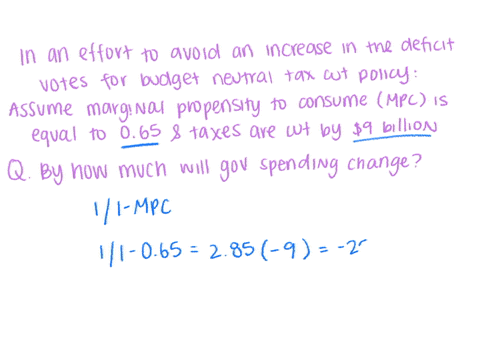 In an effort to avoid an increase in the deficit
votes for budget neutral tax cut policy:
Assume marginal propensity to consume (MPC) is
equal to 0.65 & taxes are cut by $9 billion
Q. By how much will gov spending change?
1/1-MPC
1/1-0.65 = 2.85(-9) = -2